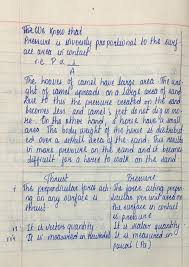 We know that
Pressure is inversely proportional to the surf
ace area in contact.
i.e. P ∝ 1
A
The hooves of camel have large area. The wei
ght of camel spreads on a large area of sand
due to this the pressure created on the sand
becomes less and camel's feet do not dig in sand
On the other hand, a horse have a small
area. The body weight of the horse is distribut
ed over a small area of sand. This results
in more pressure on the sand and it become
difficult for a horse to walk on the sand
Thrust Pressure
i The perpendicular force acti The force acting perpen
ng on any surface is dicular per unit area on
thrust the surface in contact
is pressure
ii It is vector quantity It is quantity
iii It is measured in It is measured in
pascal (Pa)